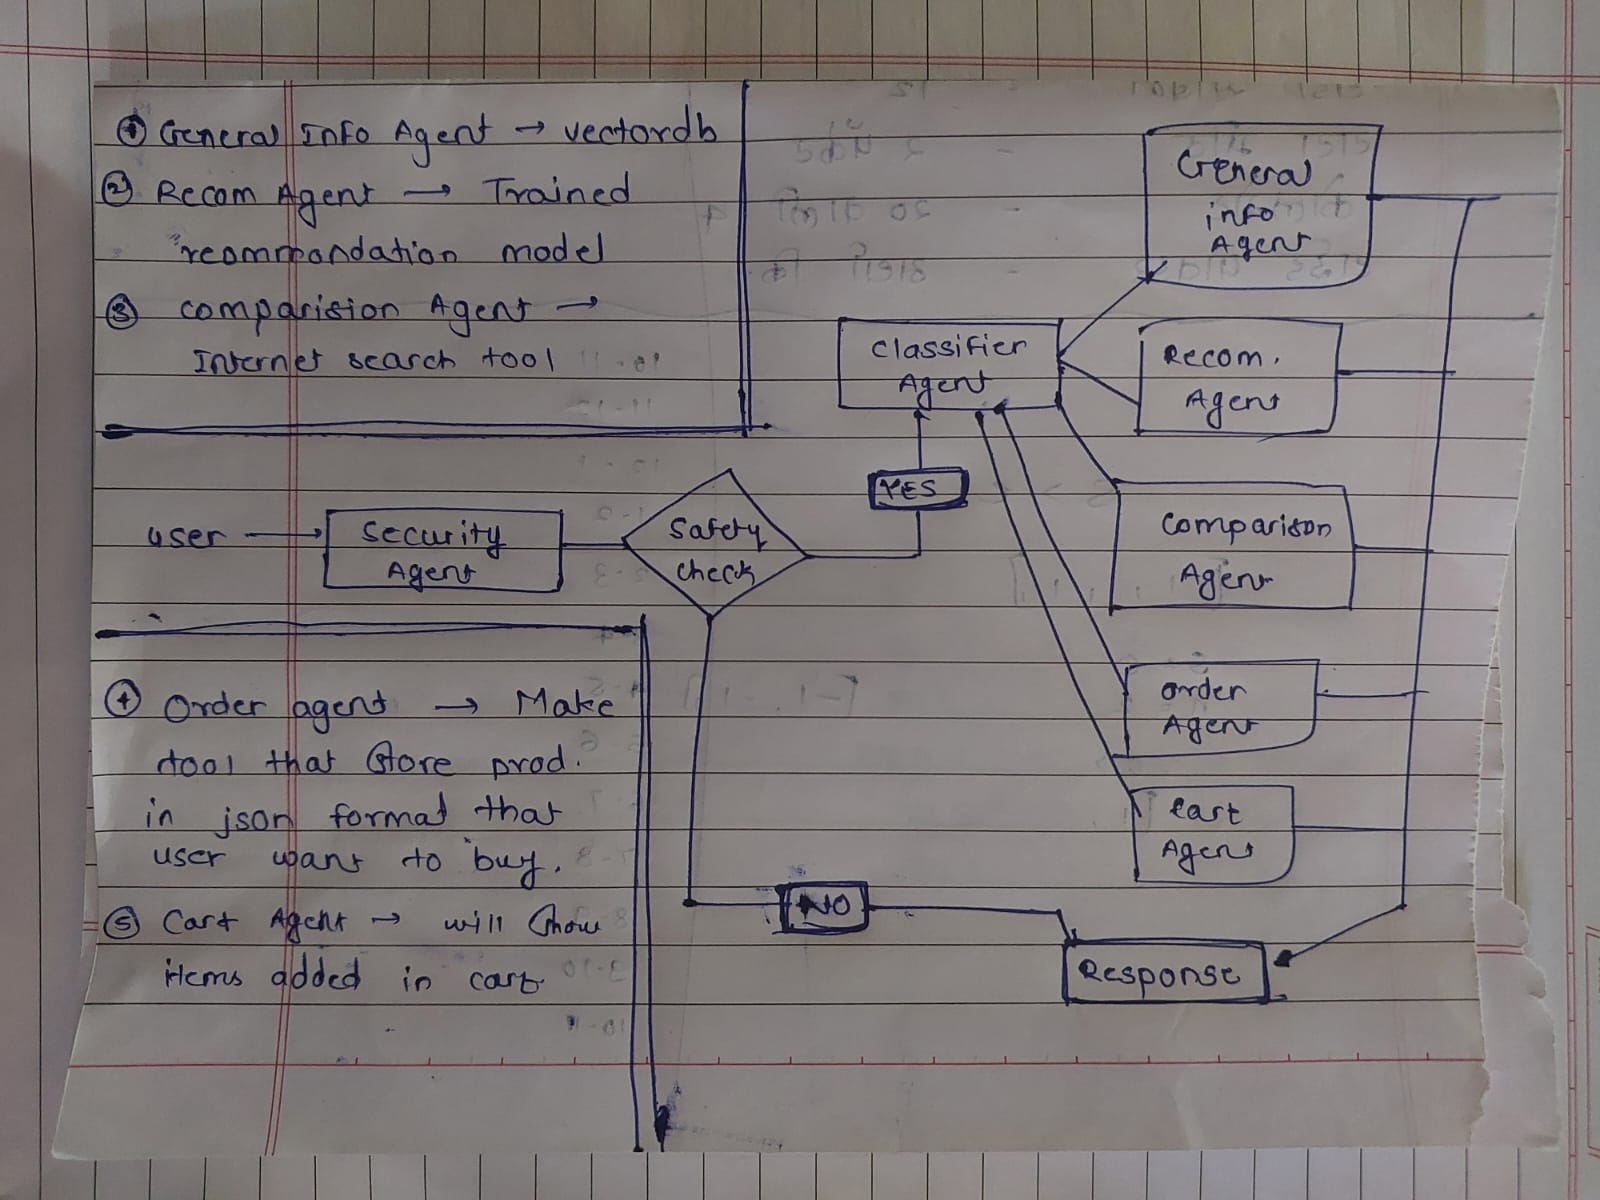 ① General Info Agent → vectordb
② Recom Agent → Trained
reommandation model
③ comparision Agent →
Internet search tool
user → Security
Agent
Safety
check
YES
NO
Classifier
Agent
General
info
Agent
Recom.
Agent
Comparison
Agent
order
Agent
Cart
Agent
Response
④ Order agent → Make
tool that Store prod.
in json format that
user want to buy.
⑤ Cart Agent → will Show
items added in cart.